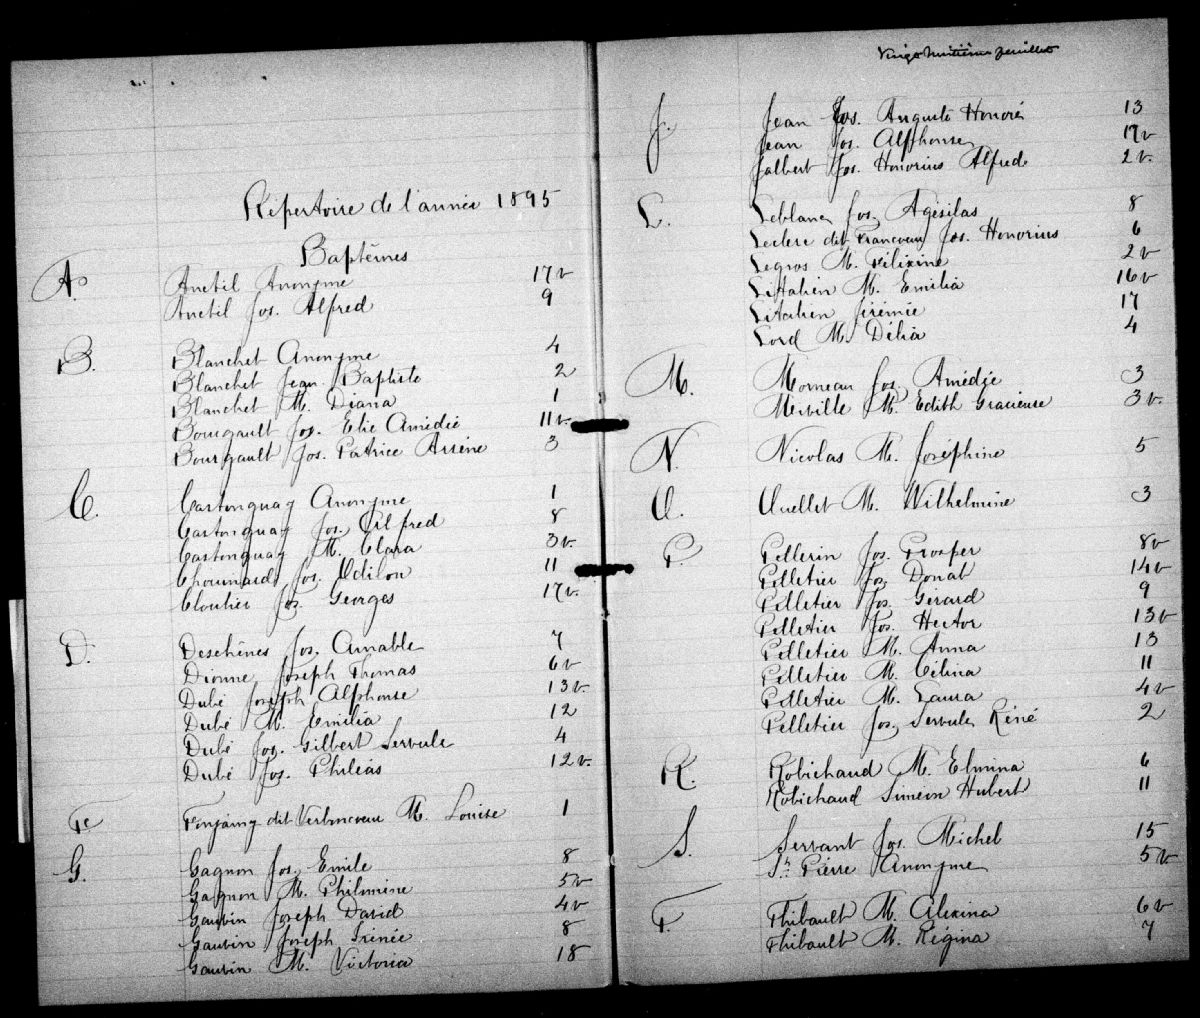 Répertoire de l'année 1895
Baptêmes
A. Anctil Anonyme 17v
Anctil Jos. Alfred 9
B. Blanchet Anonyme 4
Blanchet Jean Baptiste 2
Blanchet M. Diana 1
Bourgault Jos. Elie Amédié 11v.
Bourgault Jos. Patrice Arsène 3
C. Castonguay Anonyme 1
Castonguay Jos. Alfred 8
Castonguay M. Clara 3v.
Chouinard Jos. Odilon 11
Cloutier Jos. Georges 17v.
D. Deschênes Jos. Amable 7
Dionne Joseph Thomas 6v
Dubé Joseph Alphonse 13v
Dubé M. Emilia 12
Dubé Jos. Gilbert Servule 4
Dubé Jos. Philéas 12v.
F. dit M. Louise 1
G. Gagnon Jos. Emile 8
Gagnon M. Philomine 5v
Gauvin Joseph David 4v
Gauvin Joseph Irénée 8
Gauvin M. Victoria 18
Vingt huitième feuillet
J. Jean Jos. Auguste Honoré 13
Jean Jos. Alphonse 17v
Jalbert Jos. Honorius Alfred 2v.
L. Leblanc Jos. Agésilas 8
Leclerc dit Francoeur Jos. Honorius 6
Legros M. Félixine 2v
Litalien M. Emilia 16v
Litalien Jérémie 17
Lord M. Délia 4
M. Morneau Jos. Amédée 3
Merville M. Edith Gracieuse 3v.
N. Nicolas M. Joséphine 5
O. Ouellet M. Wilhelmine 3
P. Pellerin Jos. Prosper 8v
Pelletier Jos. Donat 14v
Pelletier Jos. Gérard 9
Pelletier Jos. Hector 13v
Pelletier M. Anna 13
Pelletier M. Célina 11
Pelletier M. Laura 4v
Pelletier Jos. Servule Réné 2
R. Robichaud M. Elmina 6
Robichaud Siméon Hubert 11
S. Servant Jos. Michel 15
St. Pierre Anonyme 5v
T. Thibault M. Alexina 6v
Thibault M. Régina 7